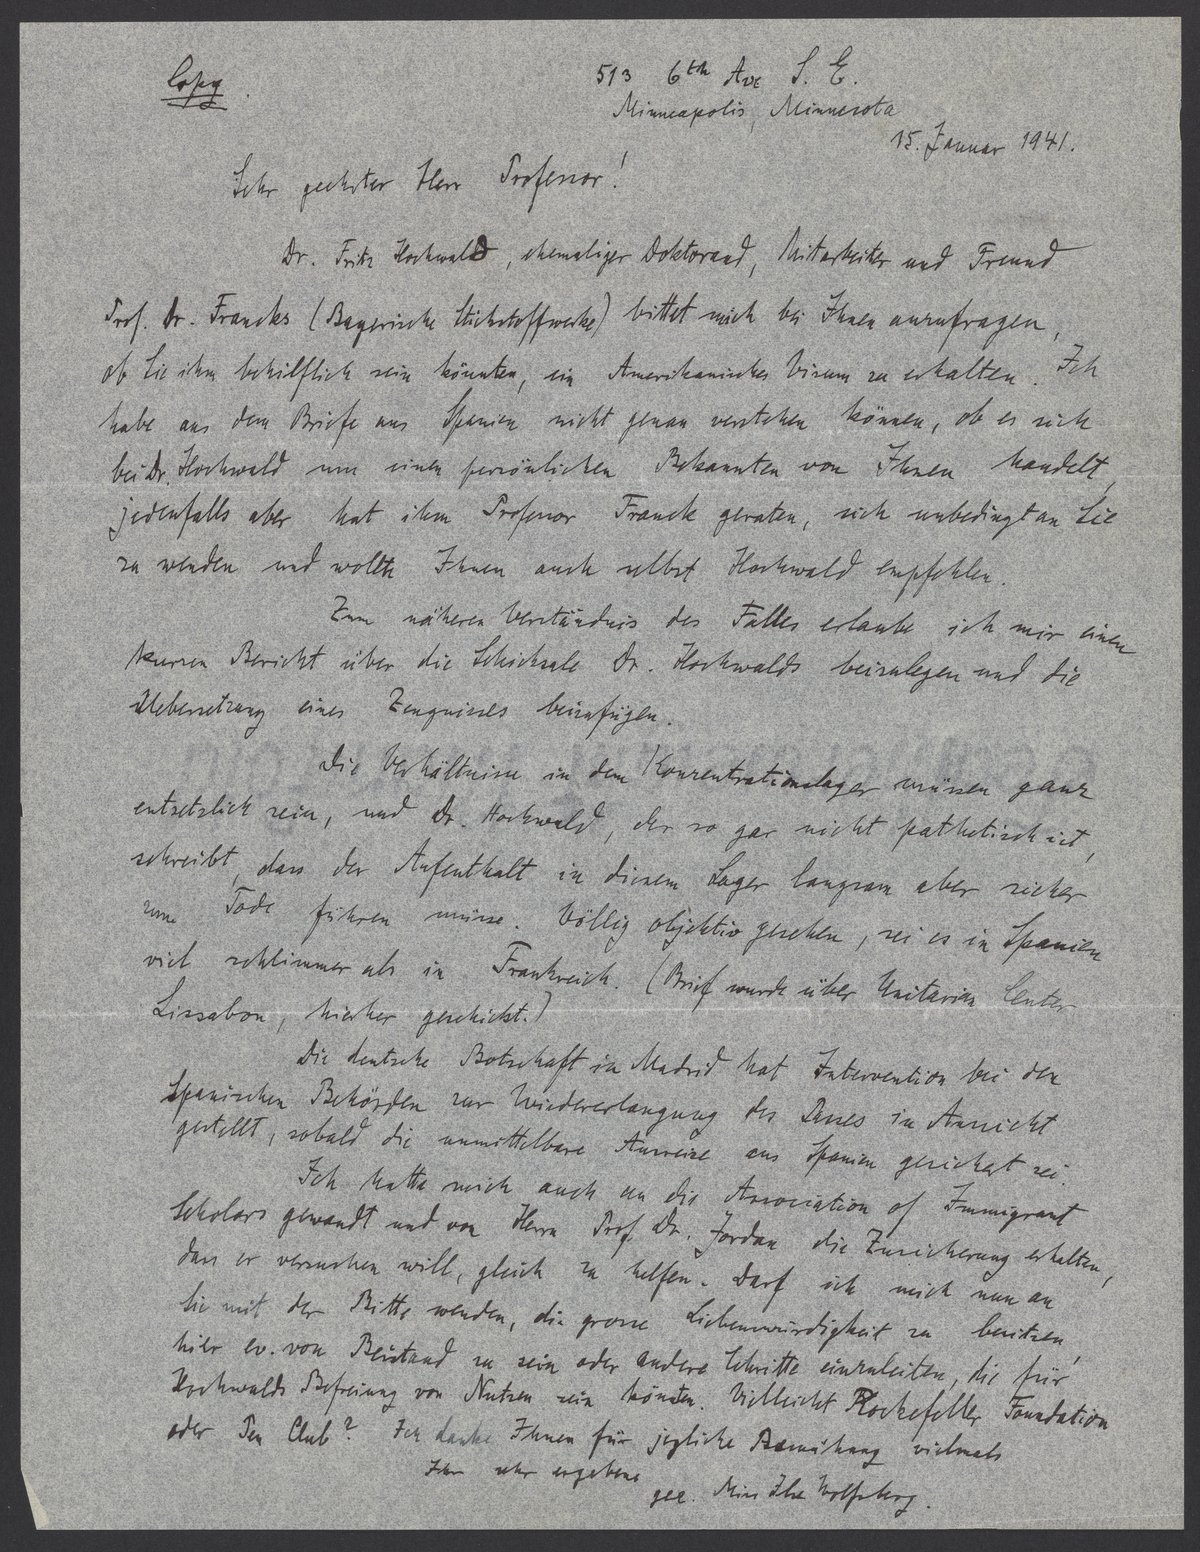 Copy.
513 6th Ave S. E.
Minneapolis, Minnesota
15. Januar 1941.
Sehr geehrter Herr Professor!
Dr. Fritz Hochwald, ehemaliger Doktorand, Mitarbeiter und Freund
Prof. Dr. Francks (Bayerische Stickstoffwerke) bittet mich bei Ihnen anzufragen,
ob Sie ihm behilflich sein könnten, ein Amerikanisches Visum zu erhalten. Ich
habe aus dem Briefe aus Spanien nicht genau verstehen können, ob es sich
bei Dr. Hochwald um einen persönlichen Bekannten von Ihnen handelt,
jedenfalls aber hat ihm Professor Franck geraten, sich unbedingt an Sie
zu wenden und wollte Ihnen auch selbst Hochwald empfehlen.
Zum näheren Verständnis des Falles erlaube ich mir einen
kurzen Bericht über die Schicksale Dr. Hochwalds beizulegen und die
Uebersetzung eines Zeugnisses beizufügen.
Die Verhältnisse in dem Konzentrationslager müssen ganz
entsetzlich sein, und Dr. Hochwald, der so gar nicht pathetisch ist,
schreibt, dass der Aufenthalt in diesem Lager langsam aber sicher
zum Tode führen müsse. Völlig objektiv gesehen, sei es in Spanien
viel schlimmer als in Frankreich. (Brief wurde über Unitarian Center
Lissabon, hierher geschickt.)
Die deutsche Botschaft in Madrid hat Intervention bei den
Spanischen Behörden zur Wiedererlangung des Passes in Aussicht
gestellt, sobald die unmittelbare Ausreise aus Spanien gesichert sei.
Ich hatte mich auch an die Association of Immigrant
Scholars gewandt und von Herrn Prof. Dr. Jordan die Zusicherung erhalten,
dass er versuchen will, gleich zu helfen. Darf ich mich nun an
Sie mit der Bitte wenden, die grosse Liebenswürdigkeit zu besitzen,
hier ev. von Beistand zu sein oder andere Schritte einzuleiten, die für
Hochwalds Befreiung von Nutzen sein könnten. Vielleicht Rockefeller Foundation
oder Pen Club? Ich danke Ihnen für jegliche Bemühung vielmals
Ihr sehr ergebene
gez. Miss Ilse Wolfsberg.